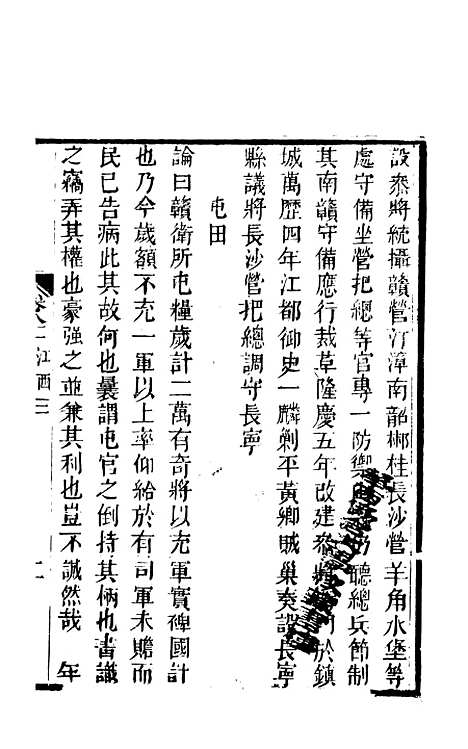 設參將統攝贛營汀漳南韶郴桂長沙營羊角水堡等
處守備坐營把總等官專一防禦 仍聽總兵節制
其南贛守備應行裁革隆慶五年改建參將 門於鎮
城萬歷四年江都御史一麟剿平黃鄉賊巢奏設長寧
縣議將長沙營把總調守長寧
屯田
論曰贛衛所屯糧歲計二萬有奇將以充軍實裨國計
也乃今歲額不充一軍以上率仰給於有司軍未贍而
民已告病此其故何也曩謂屯官之倒持其柄也書識
之竊弄其權也豪強之並兼其利也豈不誠然哉 年
卷八 二 江西三
二